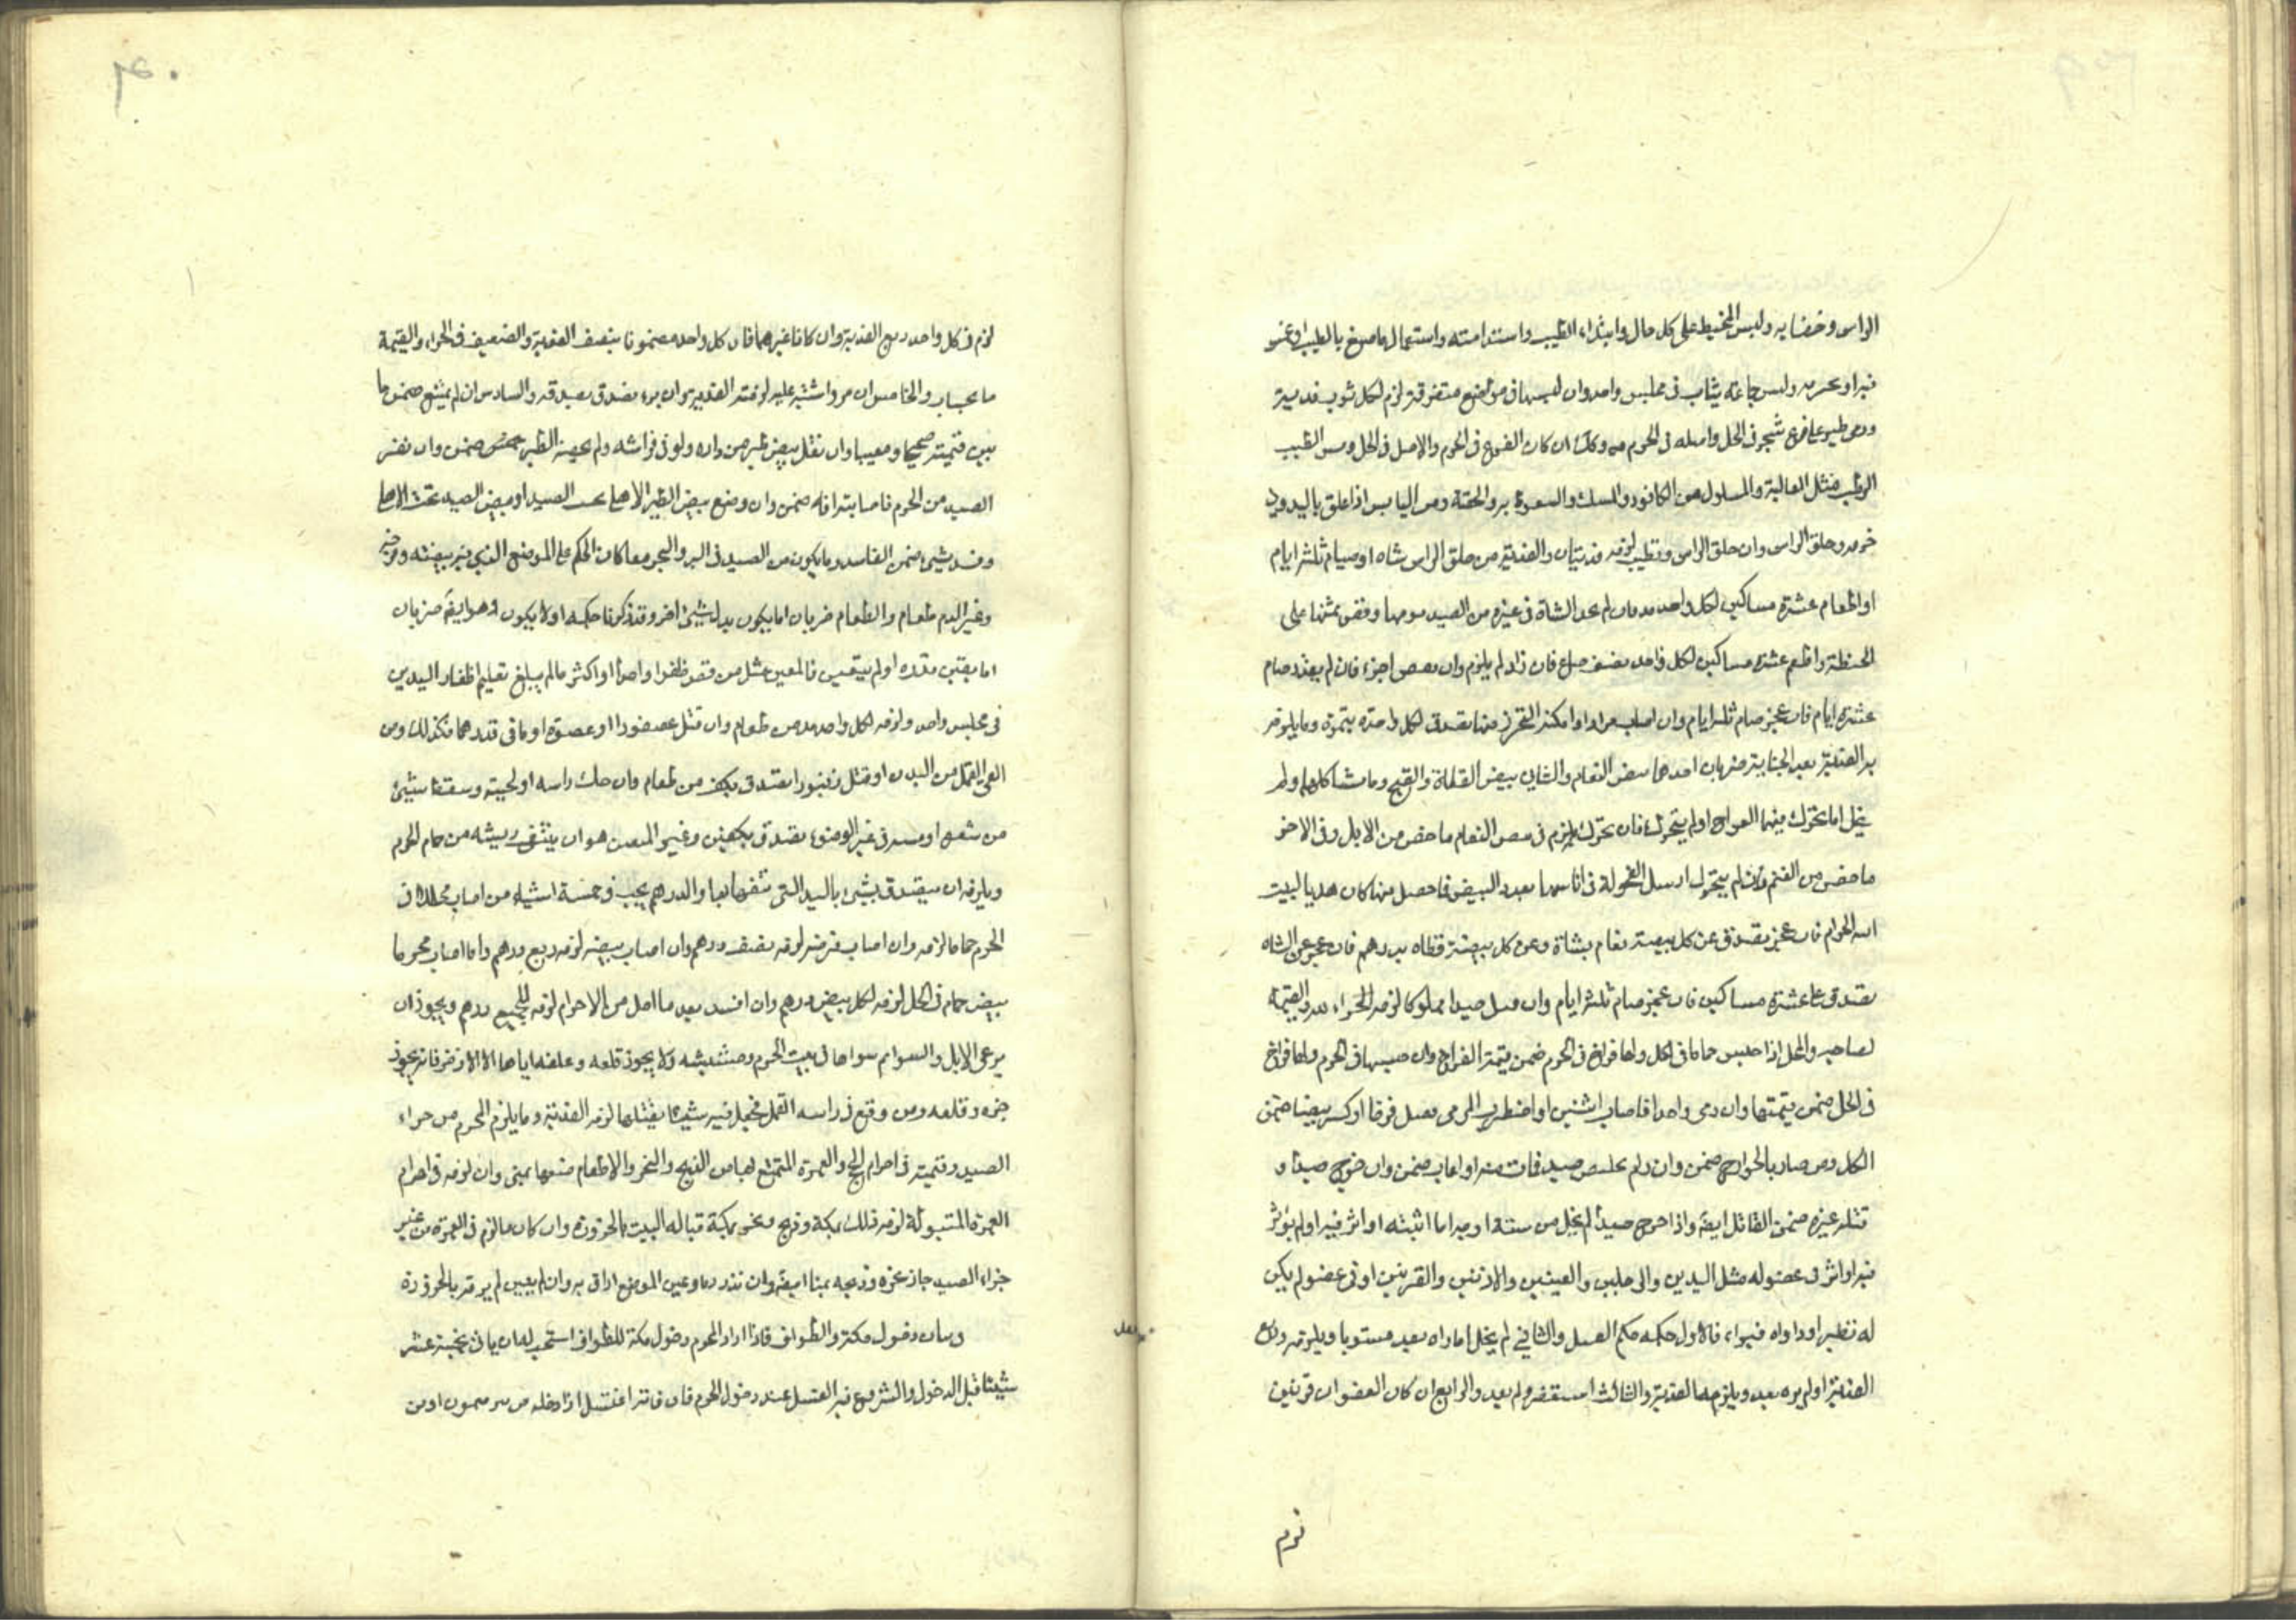 الراس وخضابه ولبس المخيط على كل حال وابتداء الطيب واستدامته واستعمال ما صبغ بالطيب او غمس
فيه او بحرمه ولبس جماعة ثياب في مجلس واحد وان لبسها في مواضع متفرقة لزم لكل ثوب فدية
ورمى طير على فرع شجر في الحل واصله في الحرم وكذلك ان كان الفرع في الحرم والاصل في الحل ومس الطيب
الرطب مثل الغالية والمبلول من الكافور والمسك والسعوط به والحقنة ومن اليابس اذا علق باليد
وحلق الراس وان حلق الراس وتطيب لزمه فديتان والفدية من حلق الراس شاة او صيام ثلثة ايام
او اطعام عشرة مساكين لكل واحد مد فان لم يجد الشاة في غيره من الصيد قومها وفض ثمنها على
الحنطة واطعم عشرة مساكين لكل واحد نصف صاع فان زاد لم يلزم وان نقص اجزء فان لم يقدر صام
عشرة ايام فان عجز صام ثلثة ايام وان اصاب جرادا وامكنه التحرز منها تصدق لكل واحدة بتمرة وما يلزم
به الفدية بعد الجناية ضربان احدهما بيض النعام والثاني بيض القطاة والقبج وما شاكلهما ولم
يخل اما تحرك فيهما الفراخ او لم يتحرك فان تحرك لزم في بيض النعام ما خض من الابل وفي الاخر
ما خض من الغنم وان لم يتحرك ارسل الفحولة في اناثهما بعدد البيض فما حصل منها كان هديا لبيت
الله الحرام فان عجز تصدق عن كل بيضة نعام بشاة وعن كل بيضة قطاة بدرهم فان عجز عن الشاة
تصدق على عشرة مساكين فان عجز صام ثلثة ايام وان قتل صيدا مملوكا لزمه الجزاء والقيمة
لصاحبه والمحل اذا حبس حماما في الحل ولها فراخ في الحرم ضمن قيمة الفراخ وان حبسها في الحرم ولها فراخ
في الحل ضمن قيمتها وان رمى واحدا فاصاب اثنين او اضطرب المرمى فقتل فرخا او كسر بيضا ضمن
الكل ومن صاد بالجوارح ضمن وان لم يخلص صيد فات منه او اعاب ضمن وان جرح صيدا و
قتله غيره ضمن القاتل ايضا واذا جرح صيدا لم يخل من ستة اوجه اما اثبته او اثر فيه او لم يؤثر
فيه او اثر في عضو له مثل اليدين والرجلين والعينين والاذنين والقرنين او في عضو لم يكن
له نظير او داواه فبراء فالاول حكمه حكم القتل والثاني لم يخل اما راه بعد مستويا ويلزمه ربع
الفدية او لم يره بعد ويلزمه الفدية والثالث استغفر ولم يعد والرابع ان كان العضوان قرنين
لزم
لزم في كل واحد ربع الفدية وان كانا غيرهما فان كل واحد مضمونا بنصف الفدية والضعيف في الجزاء والقيمة
ما بحساب والخامس ان مر واشتبه عليه لزمته الفدية وان برء تصدق بصدقة والسادس ان لم يمتنع ضمن ما
بين قيمته صحيحا ومعيبا وان نقل بيض طير من داره ولو في فراشه ولم يحضنه الطير ضمن وان نفر
الصيد من الحرم فاصابته افة ضمن وان وضع بيض الطير الاهلي تحت الصيد او بيض الصيد تحت الاهلي
وفسد شيئ ضمن الفاسد وما يكون من الصيد في البر والبحر معا كان الحكم على الموضع الذي يبيض فيه
وغير الدم طعام والطعام ضربان اما يكون بدل شيئ اخر وقد ذكرنا حكمه او لا يكون وهو ايضا ضربان
اما يتعين قدره او لم يتعين فالمعين مثل من قص ظفرا واحدا او اكثر ما لم يبلغ تقليم اظفار اليدين
في مجلس واحد ولزمه لكل واحد مد من طعام وان قتل عصفورا او صعوة او ما في قدرهما فكذلك ومن
القى القمل من البدن او قتل زنبورا تصدق بكف من طعام وان حك راسه او لحيته وسقط شيئ
من شعره او مسه في غير الوضوء تصدق بكفين وغير المعين هو ان ينتف ريشة من حمام الحرم
ويلزمه ان يتصدق بشيئ باليد التي نتفها بها والدرهم يجب في خمسة اشياء من اصاب محلا في
الحرم حماما لزمه وان اصاب فرخه لزمه نصف درهم وان اصاب بيضه لزمه ربع درهم واذا اصاب محرما
بيض حمام في الحل لزمه لكل بيض درهم وان افسد بعد ما احل من الاحرام لزمه للجميع درهم ويجوز ان
يرعى الابل والسوائم سواها في نبت الحرم وحشيشه ولا يجوز قلعه وعلفه اياها الا الاذخر فانه يجوز
جزه وقلعه ومن وقع في راسه القمل فجعل فيه شيئا يقتلها لزمه الفدية وما يلزم المحرم من جزاء
الصيد وقيمته في احرام الحج والعمرة المتمتع لها من الذبح والنحر والاطعام صنعها بمنى وان لزمه في احرام
العمرة المبتولة لزمه ذلك بمكة وذبح ونحر بمكة قبالة البيت بالحزورة وان كان ما لزم في العمرة من غير
جزاء الصيد جاز غيره وذبحه بمنا ايضا وان نذر دما وعين الموضع اراق به وان لم يعين لم يرقه بالحزورة
بيان دخول مكة والطواف فاذا اراد المحرم دخول مكة للطواف استحب له ان ياتي بخمسة عشر
شيئا قبل الدخول والشروع فيه الغسل عند دخول الحرم فان فاته اغتسل اذا دخله من بئر ميمون او من